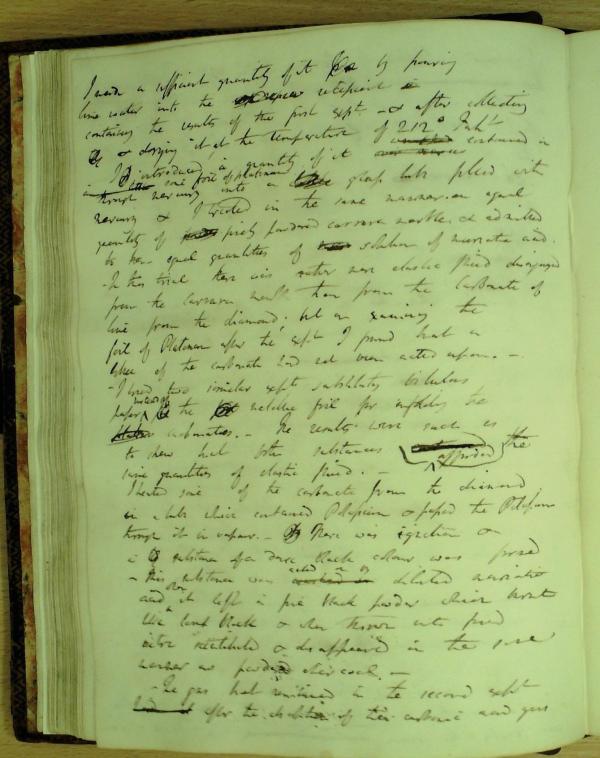 I made a sufficient quantity of it by pouring
lime water into the recipient
containing the results of the first expt & after collecting
& drying it at the temperature of 212° Faht
I introduced a quantity of it contained in
some foil of platinum
through mercury into a glass tube filled with
mercury & I treated in the same manner an equal
quantity of finely powdered carrara marble & admitted
to them equal quantities of solution of muriatic acid.
In this trial there was rather more elastic fluid disengaged
from the Carrara marble than from the Carbonate of
lime from the diamond; but on examining the
foil of Platinum after the expt I found that a
little of the carbonate had not been acted upon. –
– I tried two similar expts substituting bibulous
paper instead of the metallic foil for enfolding the
carbonates. – The results were such as
to shew that both substances afforded the
same quantities of elastic fluid. –
I heated some of the carbonate from the diamond
in a tube which contained Potassium & passed the Potassium
through it in vapour. – There was ignition &
a substance of a dark black colour was found
– this substance was acted on by diluted muriatic
acid & it left a fine black powder which burnt
like lamp black & when thrown into fused
nitre scintillated & disappeared in the same
manner as powdered charcoal. –
– The gas that remained in the second expt
after the absorption of the carbonic acid gas